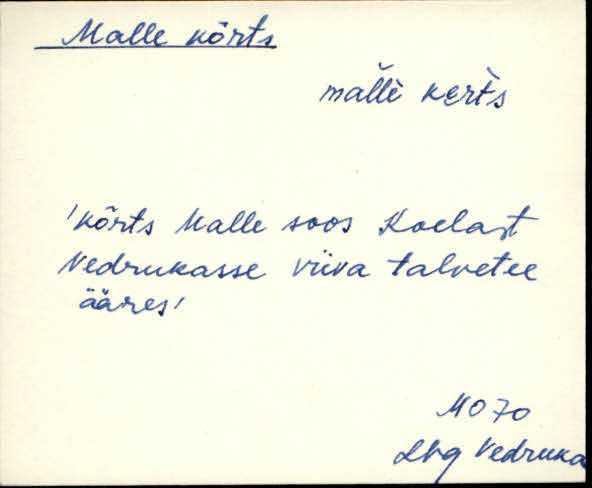 Malle kõrts
mälle kerts
'kõrts Malle soos Koelast
Vedrukasse viiva talvetee
ääres'
MO 70
Lhg Vedruka